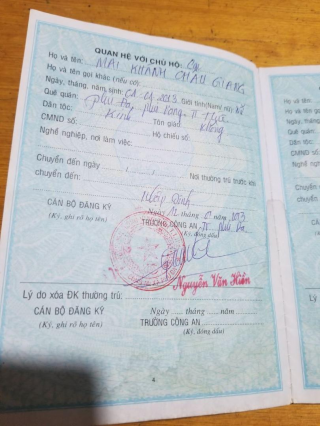 QUAN HỆ VỚI CHỦ HỘ:
Họ và tên: MAI KHÁNH CHÂU GIANG
Họ và tên gọi khác (nếu có):
Ngày, tháng, năm sinh: 2013 Giới tính: Nữ
Quê quán: Phú Đa, Phú Vang, TT Huế
Dân tộc: Kinh Tôn giáo: Không
CMND số: Hộ chiếu số:
Nghề nghiệp, nơi làm việc:
Chuyển đến ngày Nơi thường trú trước khi
chuyển đến:
CÁN BỘ ĐĂNG KÝ
(Ký, ghi rõ họ tên)
Ngày 12 tháng năm 2013
TRƯỞNG CÔNG AN TT Phú Đa
(Ký, đóng dấu)
Nguyễn Văn Hiền
Lý do xóa ĐK thường trú:
CÁN BỘ ĐĂNG KÝ
(Ký, ghi rõ họ tên)
Ngày .... tháng .... năm
TRƯỞNG CÔNG AN
(Ký, đóng dấu)
Họ và tên
Họ và tên
Ngày, thá
Quê quán
Dân tộc:
CMND số
Nghề ngh
Chuyển
chuyển đ
CÁN
(Ký,
Lý do x
CÁN
(Ký